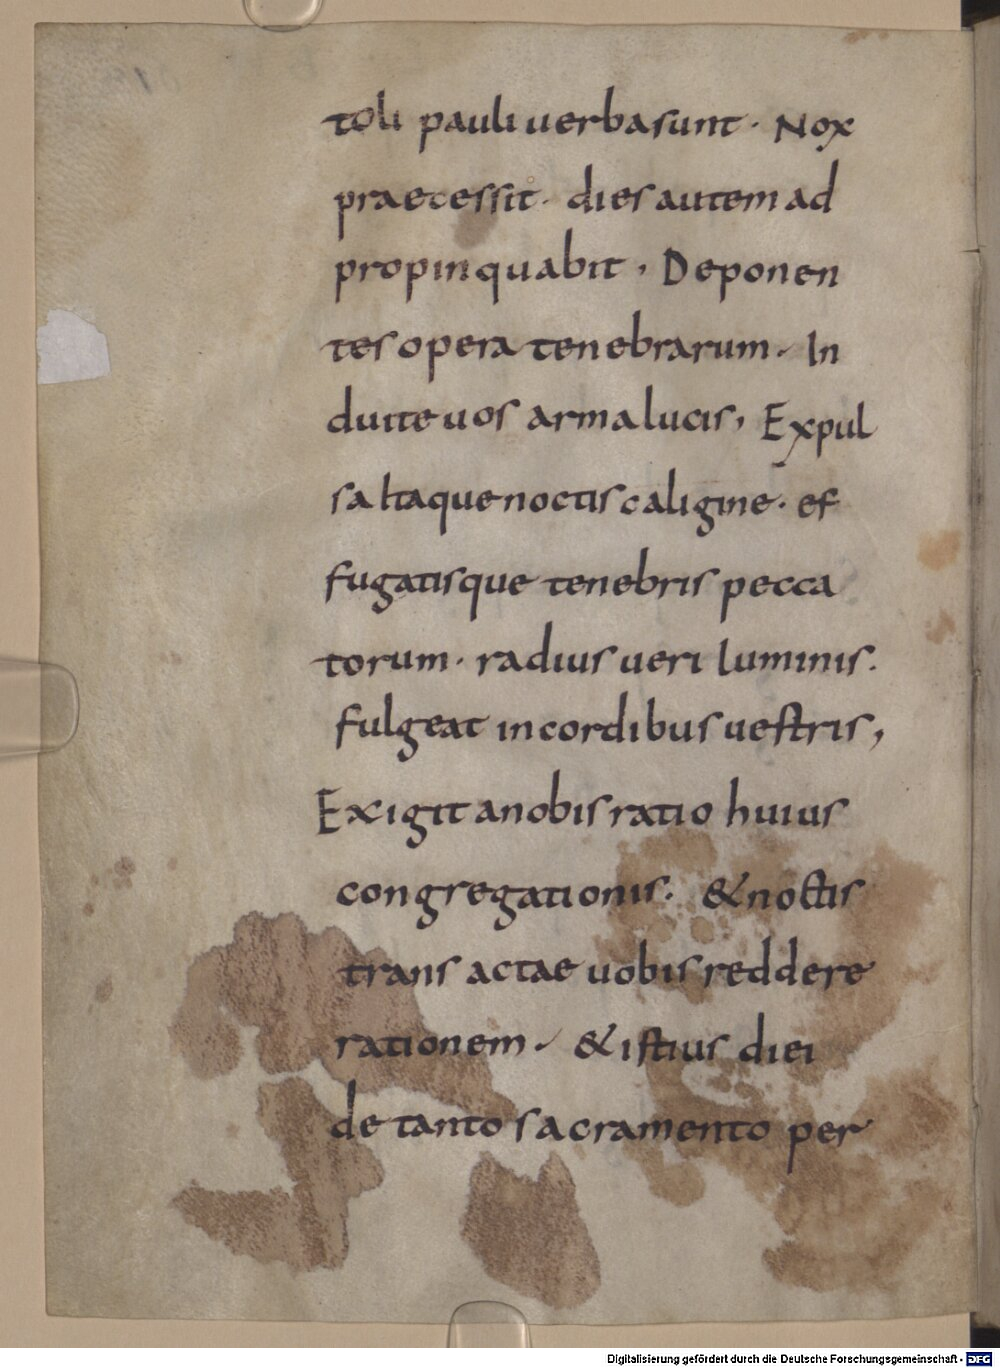 toli pauli uerba sunt · Nox
praecessit · dies autem ad
propinquabit , Deponen
tes opera tenebrarum · In
duite uos arma lucis , Expul
sa Itaque noctis caligine · ef
fugatisque tenebris pecca
torum · radius ueri luminis ·
fulgeat in cordibus uestris ,
Exigit a nobis ratio huius
congregationis · & noctis
trans actae uobis reddere
rationem · & istius diei
de tanto sacramento per
Digitalisierung gefördert durch die Deutsche Forschungsgemeinschaft - DFG